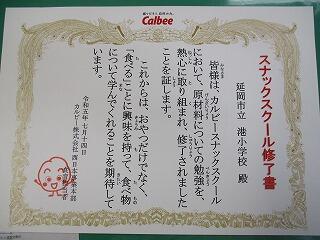 Calbee
スナックスクール修了書
延岡市立 港小学校 殿
皆様は、カルビースナックスクール
において、原材料についての勉強を、
熱心に取り組まれ、修了されました
ことを証します。
これからは、おやつだけでなく、
「食べる」ことに興味を持って、食べ物
について学んでくれることを期待して
います。
令和五年七月十四日
カルビー株式会社 西日本事業本部